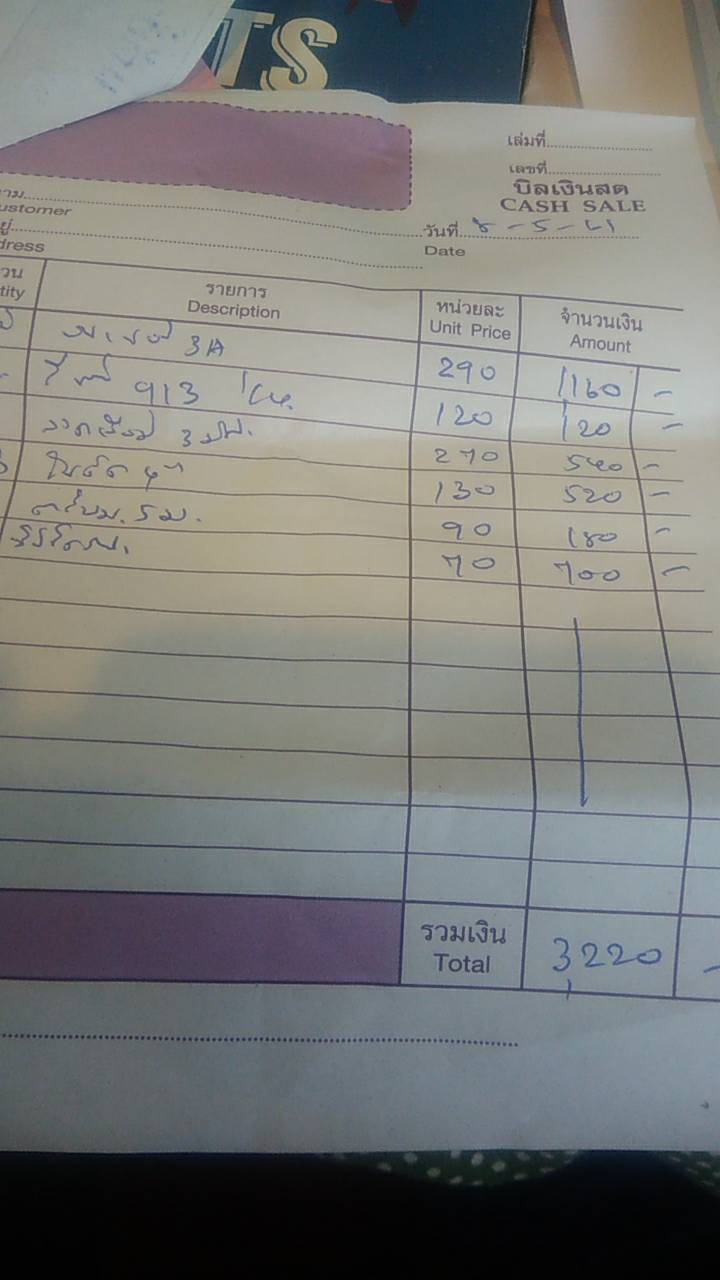 TS
เล่มที่
เลขที่
บิลเงินสด
CASH SALE
าม
ustomer
วันที่ 8-5-61
Date
ยู่
dress
วน
tity
รายการ
Description
หน่วยละ
Unit Price
จำนวนเงิน
Amount
3A 290 1160 -
913 120 120 -
3 270 540 -
ใบตัด 4" 130 520 -
5 ม. 90 180 -
70 700 -
รวมเงิน
Total
3220 -